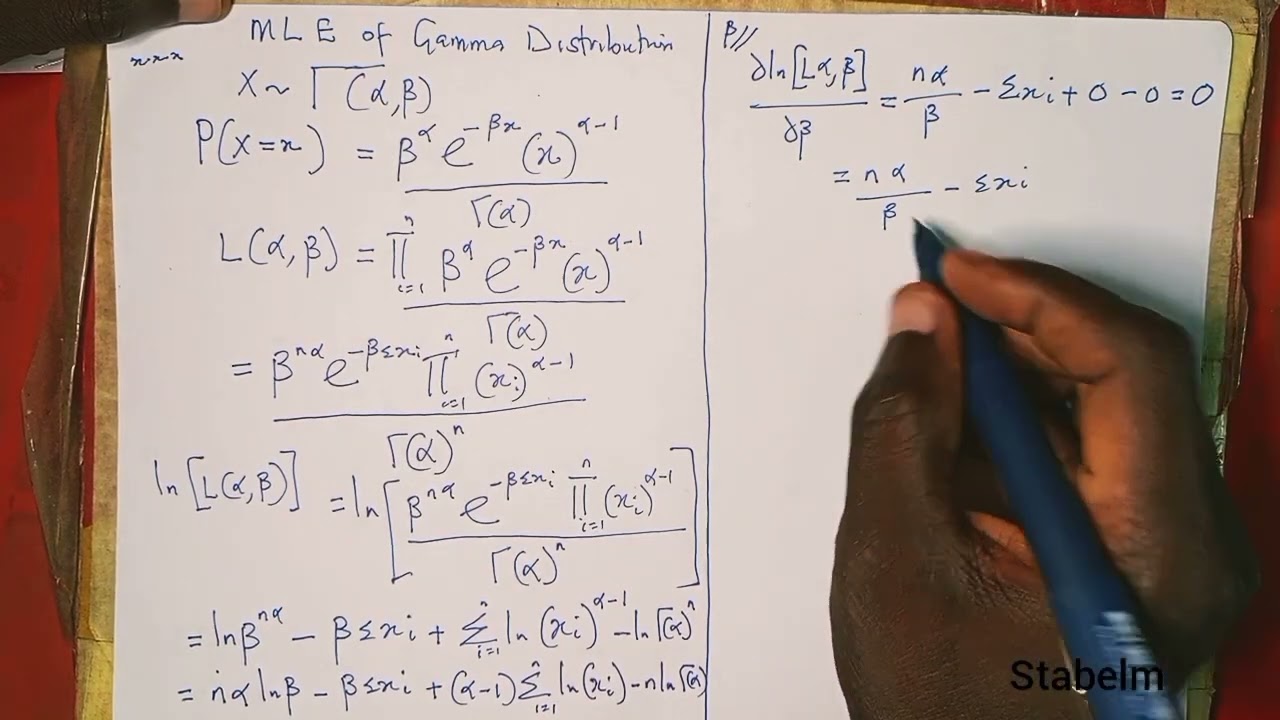 MLE of Gamma Distribution
xxx
X ~ Γ(α,β)
P(X=x) = β^α e^{-βx} (x)^{α-1} / Γ(α)
L(α,β) = ∏_{i=1}^{n} β^α e^{-βx} (x)^{α-1} / Γ(α)
= β^{nα} e^{-βΣxi} ∏_{i=1}^{n} (xi)^{α-1} / Γ(α)^n
ln[L(α,β)] = ln[β^{nα} e^{-βΣxi} ∏_{i=1}^{n} (xi)^{α-1} / Γ(α)^n]
= lnβ^{nα} - βΣxi + Σ_{i=1}^{n} ln(xi)^{α-1} - lnΓ(α)^n
= nα lnβ - βΣxi + (α-1) Σ_{i=1}^{n} ln(xi) - n lnΓ(α)
β//
∂ln[Lα,β] / ∂β = nα/β - Σxi + 0 - 0 = 0
= nα/β - Σxi
Stabelm